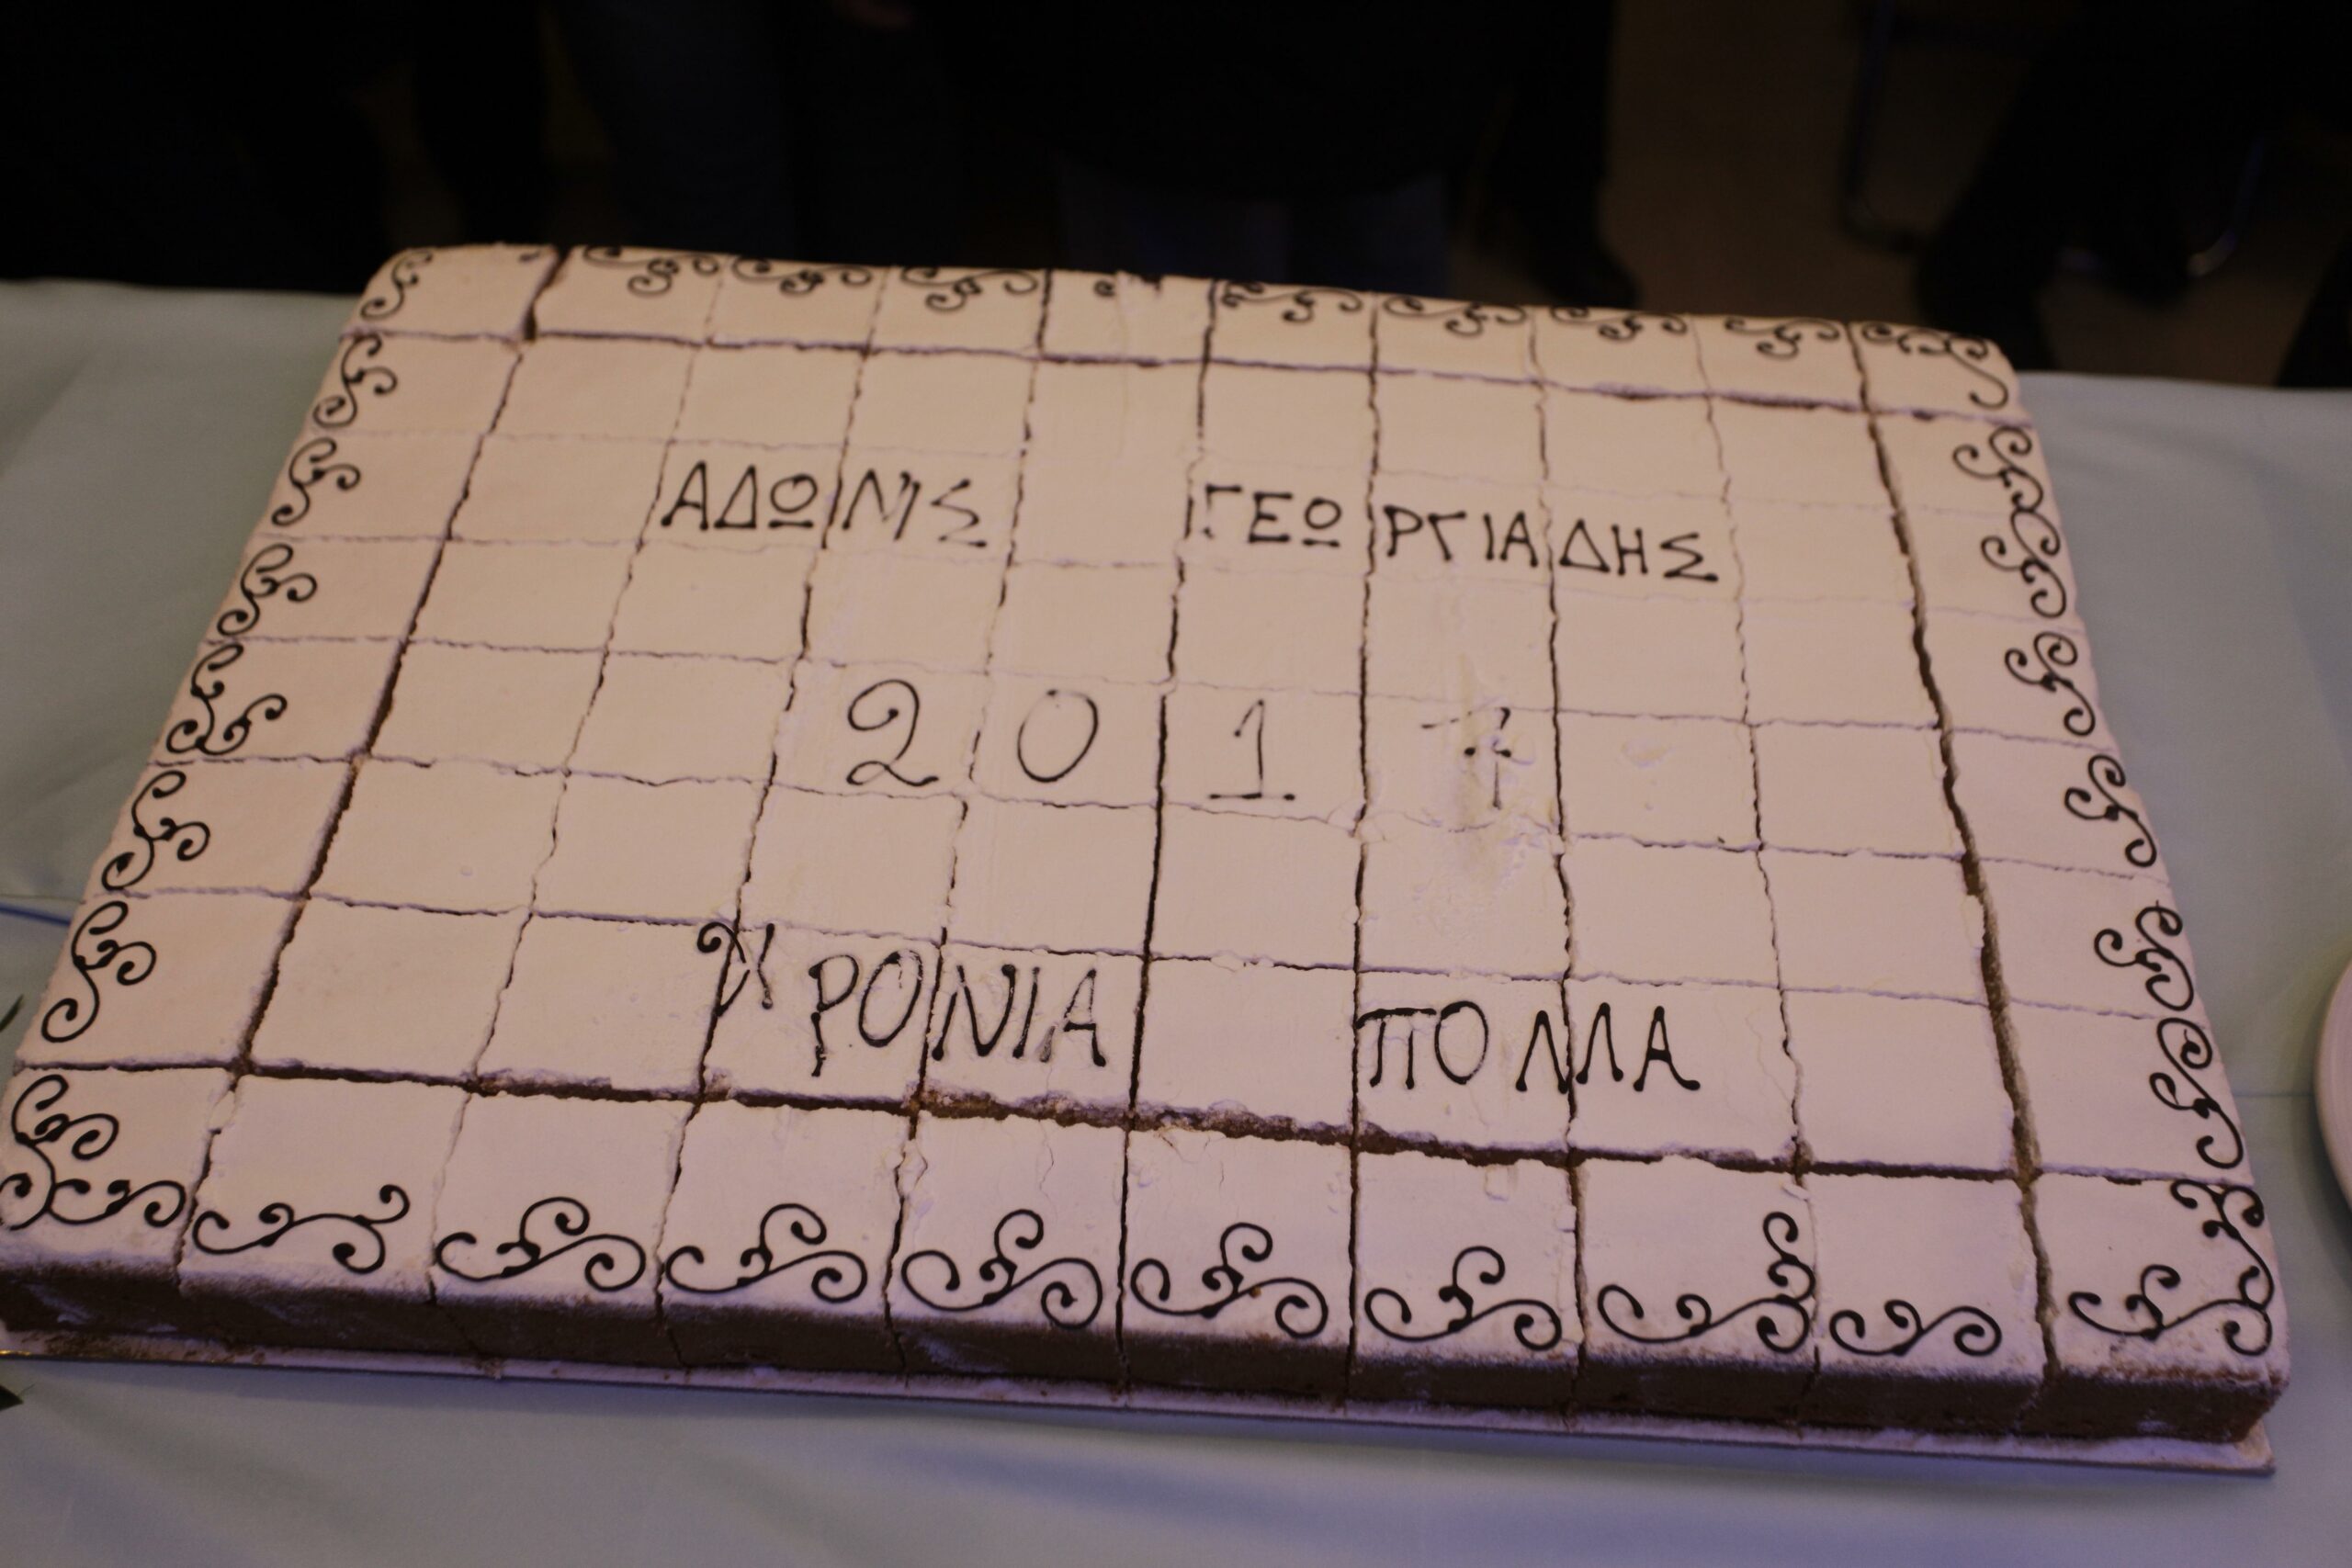 ΑΔΩΝΙΣ ΓΕΩΡΓΙΑΔΗΣ
2017
ΧΡΟΝΙΑ ΠΟΛΛΑ